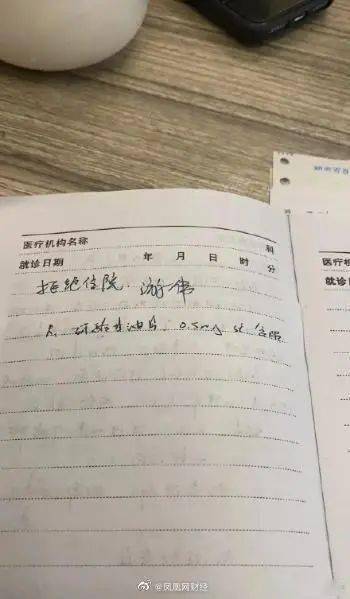 医疗机构名称 科
就诊日期 年 月 日 时 分
拒绝住院.游伟
R. 硝酸甘油片. 0.5mg st 含服
医疗机构
就诊日
@凤凰网财经